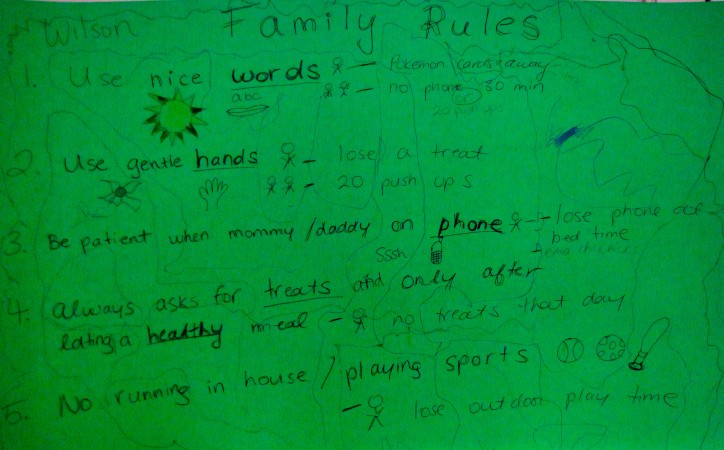 Wilson Family Rules
1. Use nice words - Pokemon cards away
abc - no phone 30 min
or
2. Use gentle hands - lose a treat
- 20 push ups
3. Be patient when mommy/daddy on phone - lose phone at
Sssh bed time
4. Always asks for treats and only after
eating a healthy meal - no treats that day
5. No running in house / playing sports
- lose outdoor play time